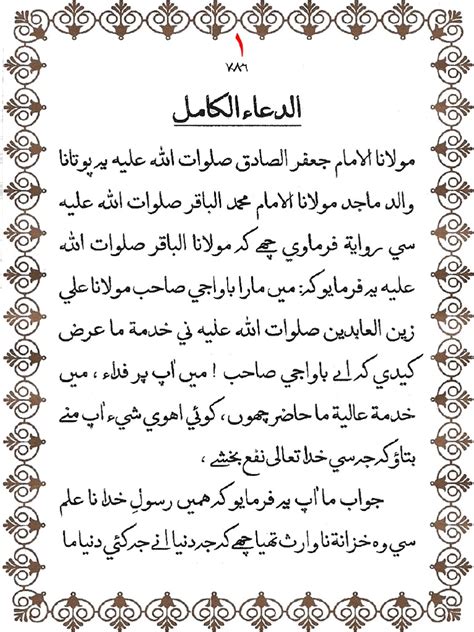 ١
٧٨٦
الدعاء الكامل
مولانا الامام جعفر الصادق صلوات الله عليه يه پوتانا
والد ماجد مولانا الامام محمد الباقر صلوات الله عليه
سي رواية فرماوي چھے كه مولانا الباقر صلوات الله
عليه يه فرمايو كه: ميں مارا باواجي صاحب مولانا علي
زين العابدين صلوات الله عليه ني خدمة ما عرض
كيدي كه اے باواجي صاحب ! ميں اْپ پر فداء ، ميں
خدمة عالية ما حاضر چھوں، كوئي اهوي شيء اْپ منے
بتاؤ كه جه سي خدا تعالى نفع بخشے ،
جواب ما اْپ يه فرمايو كه هميں رسولِ خدا نا علم
سي وه خزانة نا وارث تھيا چھے كه جه دنيا انے جه كئي دنيا ما